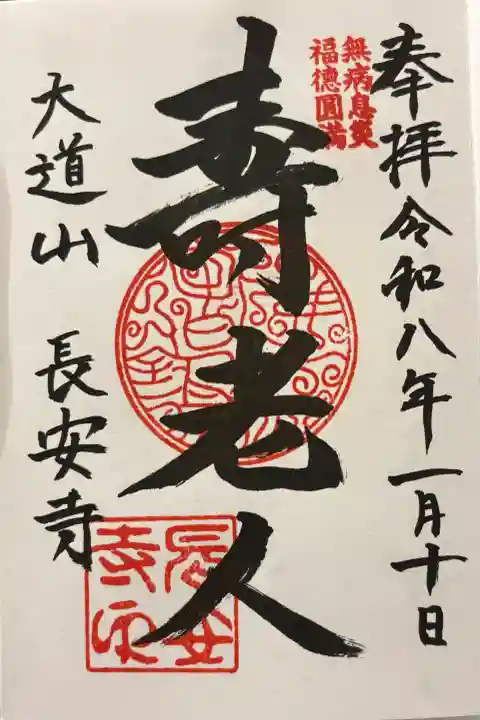 奉拝 令和八年一月十日
無病息災
福徳圓満
壽老人
大道山 長安寺